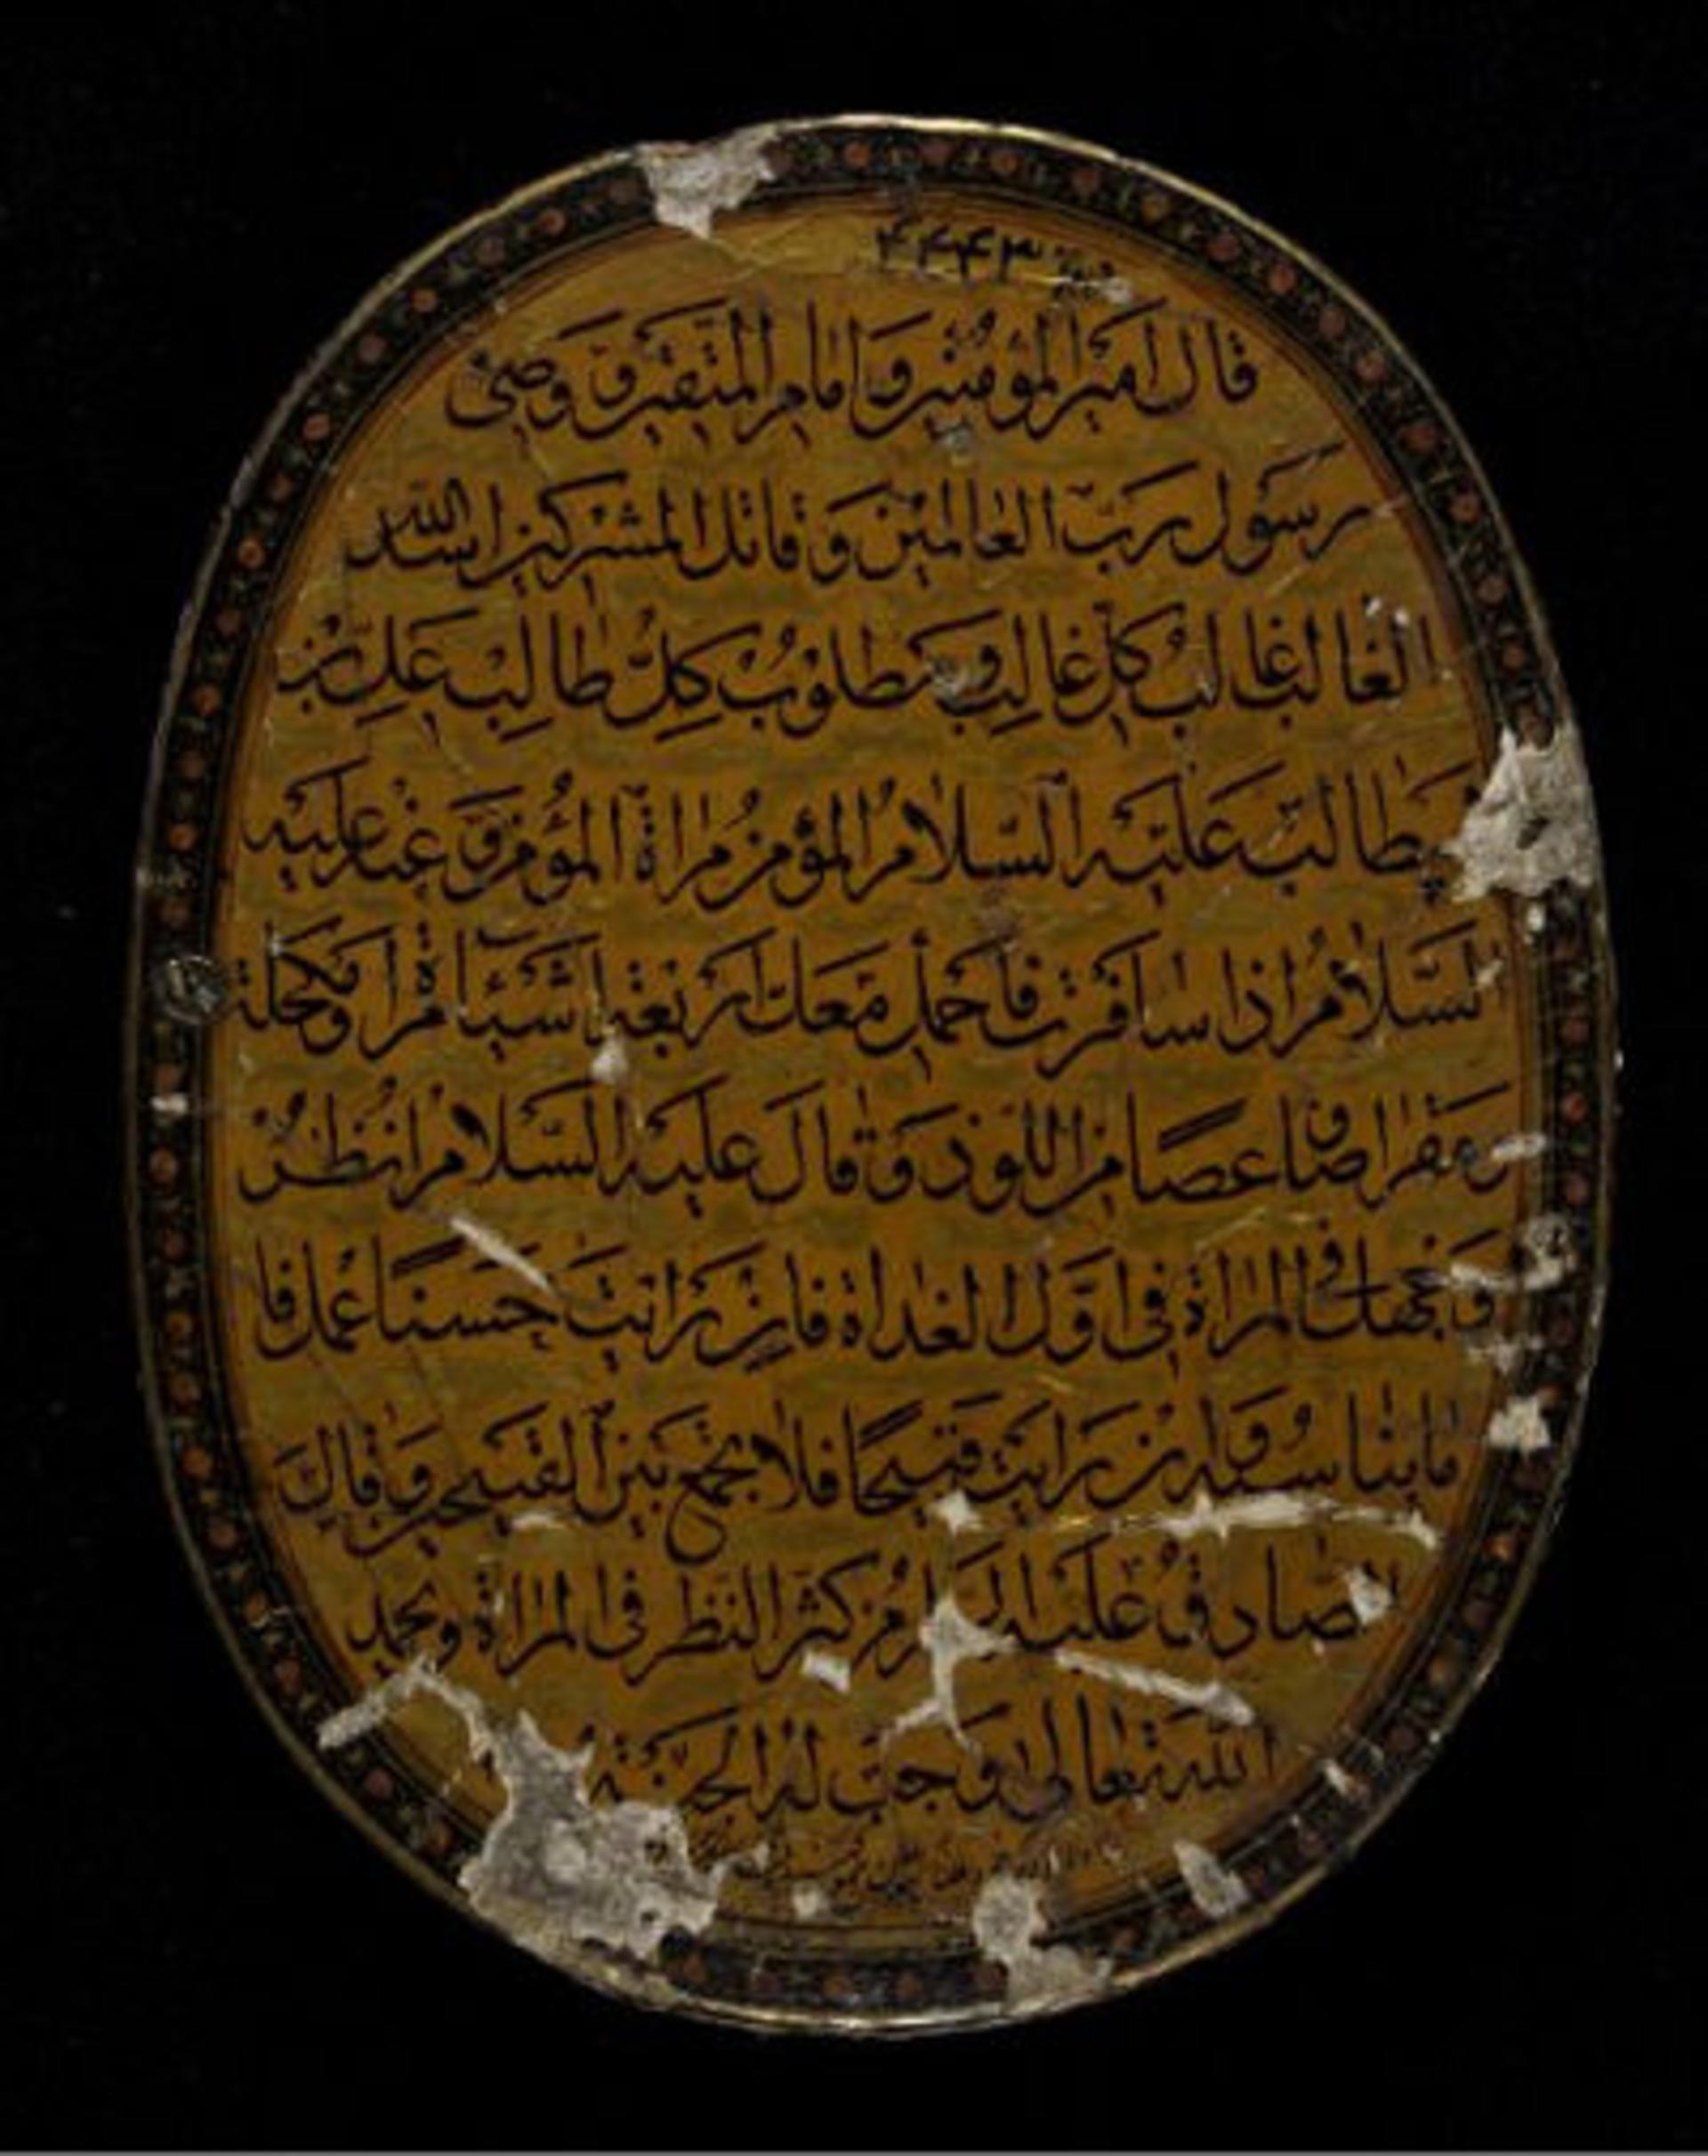 ۴۴۴۳
قال امیر المؤمنین و امام المتقین و وصی
رسول رب العالمین و قاتل المشرکین اسد الله
الغالب غالب کل غالب و مطلوب کل طالب علی بن
ابیطالب علیه السلام المؤمن مراة المؤمن و عنه علیه
السلام اذا سافرت فاحمل معک اربعة اشیآء مراة و مکحلة
و مقراضا و عصا من اللوز و قال علیه السلام انظر
وجهک فی المراة فی اول الغداة فان رایت حسنا عمل فا
سوء و ان رایت قبیحا فلا یجمع بین القبیحین و قال
الصادق علیه السلام من کثر النظر فی المراة و یحمد
الله تعالی وجبت له الجنة